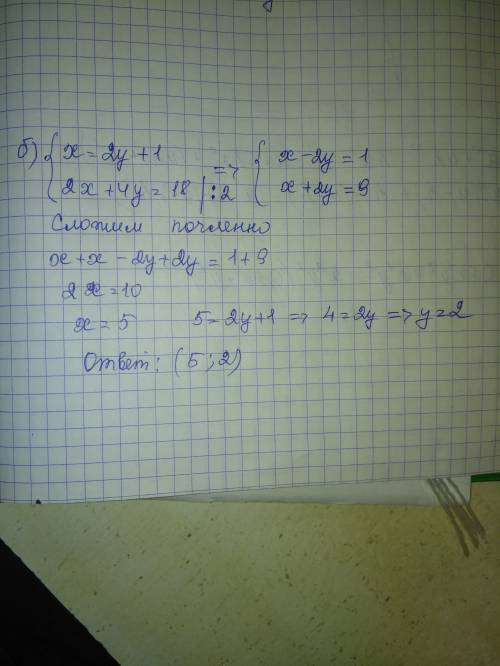 б) { x = 2y + 1 => { x - 2y = 1
{ 2x + 4y = 18 | : 2 { x + 2y = 9
Сложим почленно
x + x - 2y + 2y = 1 + 9
2x = 10
x = 5 5 = 2y + 1 => 4 = 2y => y = 2
Ответ: (5 ; 2)